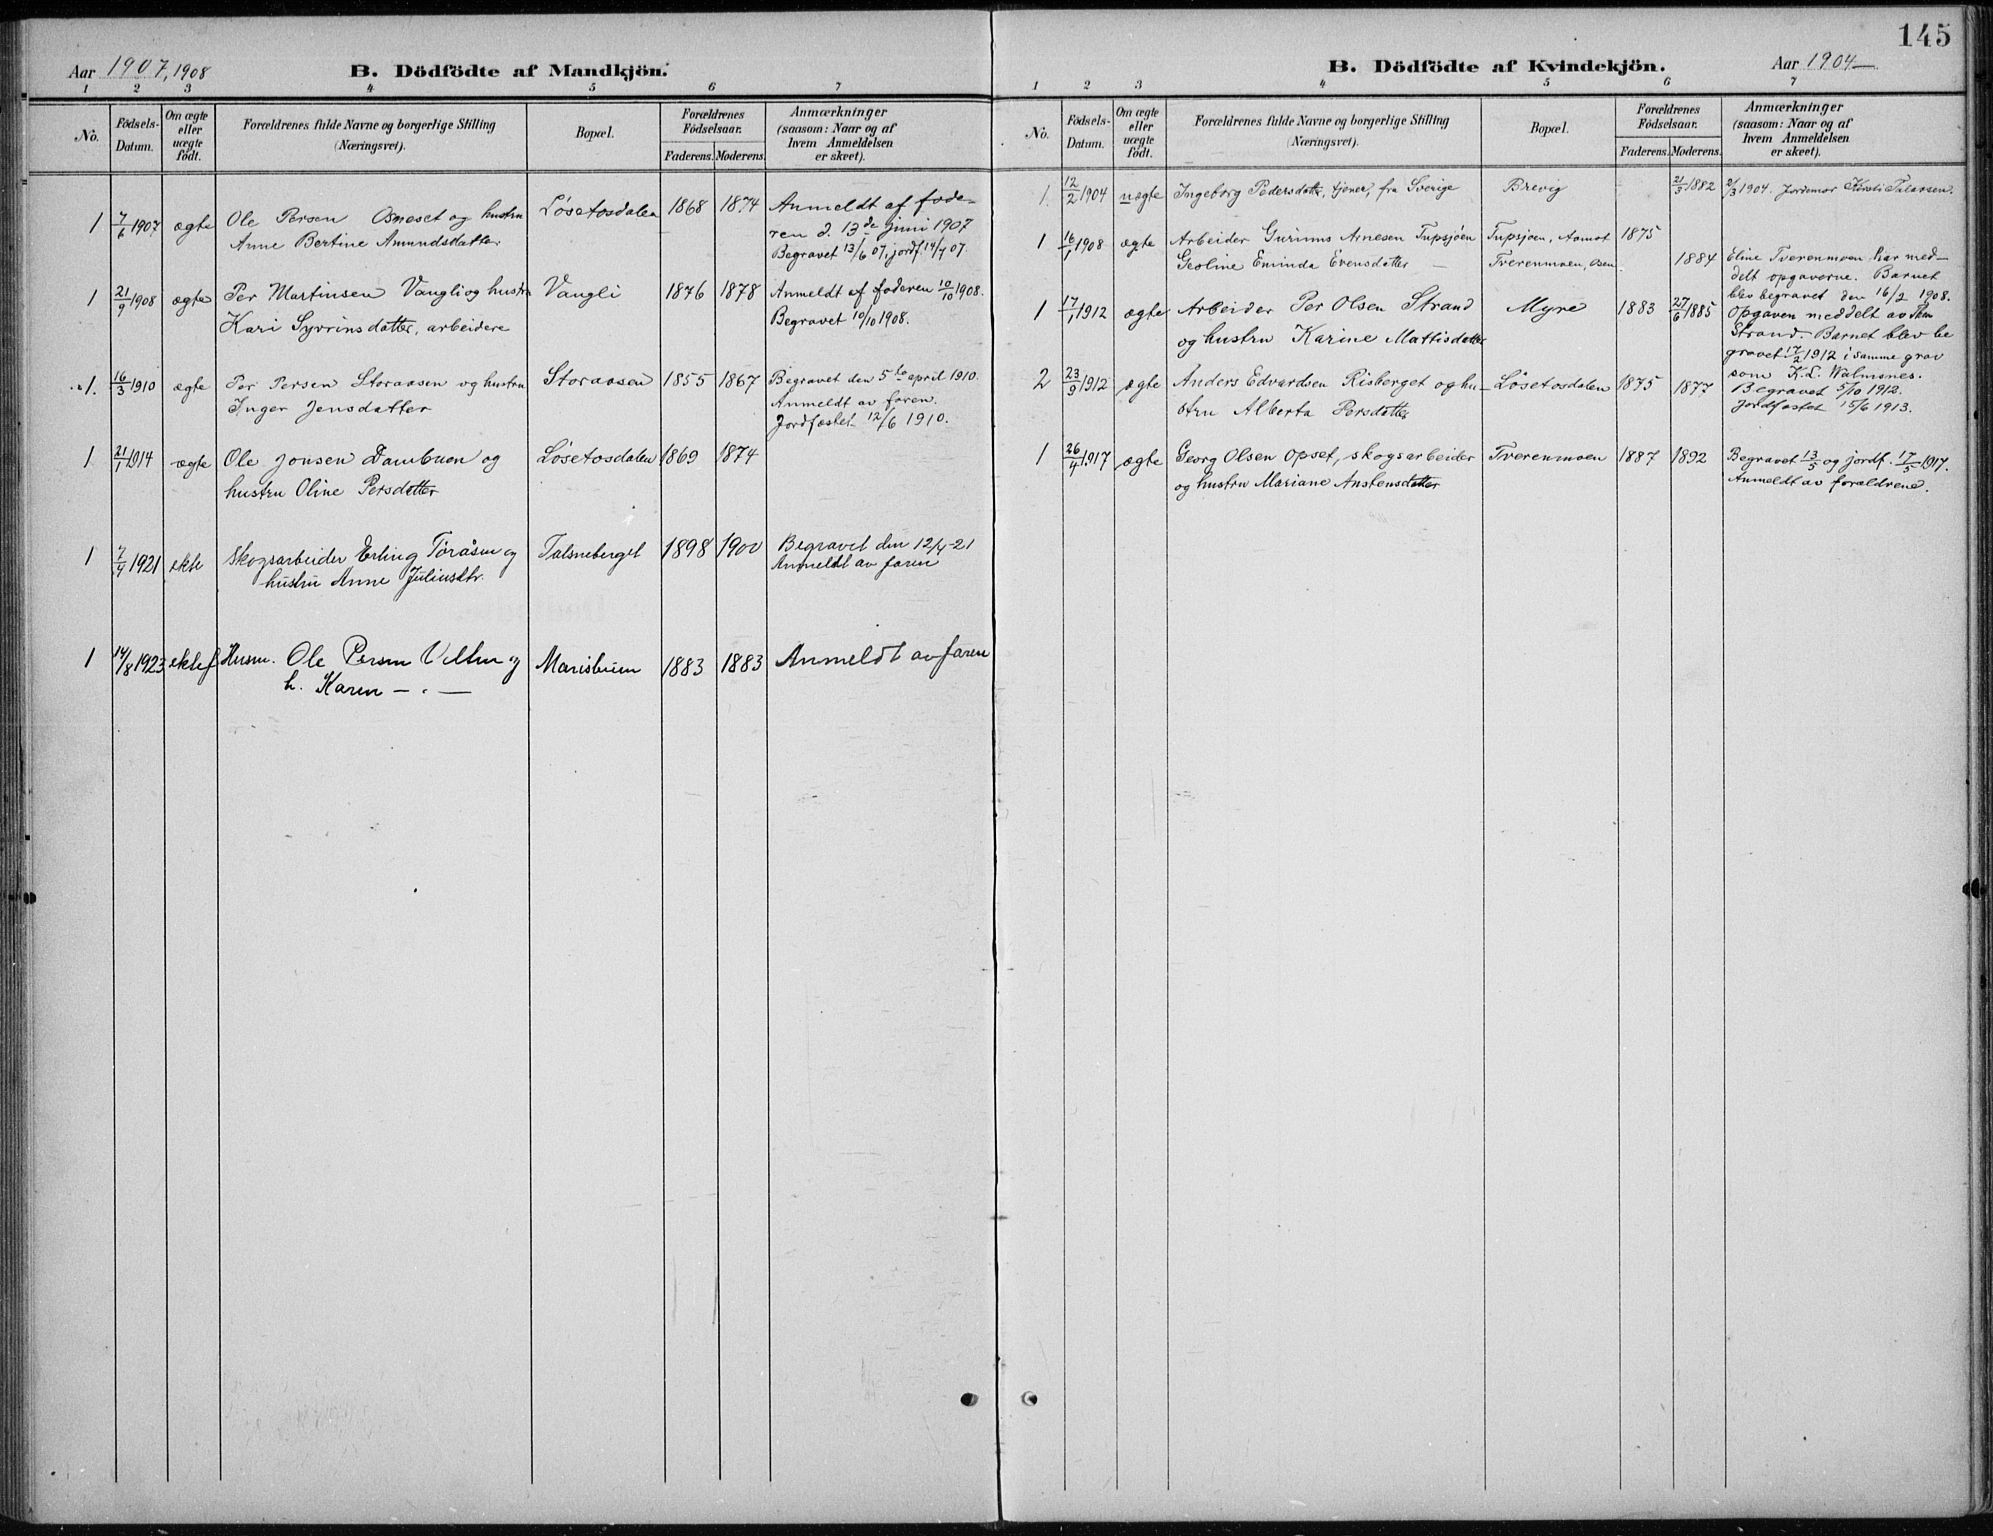 145
Aar 1907, 1908
B. Dödfödte af Mandkjön.
1 2 3 4 5 6 7
No.
Födsels-
Datum.
Om ægte
eller
uægte
födt.
Forældrenes fulde Navne og borgerlige Stilling
(Næringsvei).
Bopæl.
Forældrenes
Födselsaar.
Faderens. Moderens.
Anmærkninger
(saasom: Naar og af
hvem Anmeldelsen
er skeet).
1 7/6 1907 ægte Ole Persen Osneset og hustru Løsetosdalen 1868 1874 Anmeldt af fade-
Anne Bertine Amundsdatter. ren d. 13de juni 1907
Begravet 13/6 07, jordf. 14/7 07.
1 21/9 1908 ægte Per Martinsen Vangli og hustru Vangli 1876 1878 Anmeldt af faderen 10/10 1908.
Kari Syvrinsdatter, arbeidere Begravet 10/10 1908.
1. 16/3 1910 ægte Per Persen Storaasen og hustru Storaasen 1855 1867 Begravet den 5te april 1910.
Inger Jensdatter Anmeldt av faren.
Jordfæstet 12/6 1910.
1 21/1 1914 ægte Ole Jonsen Dambuen og Løsetosdalen 1869 1874
hustru Oline Persdatter
1 7/4 1921 ekte Skogsarbeider Erling Töråsen og 1898 1900 Begravet den 12/4-21
hustru Anne Juliusdtr. Anmeldt av faren
1 14/8 1923 ektef Husm. Ole Persen og 1883 1883 Anmeldt av faren
h. Karen — " —
B. Dödfödte af Kvindekjön.
Aar 1904—
1 2 3 4 5 6 7
No.
Födsels-
Datum.
Om ægte
eller
uægte
födt.
Forældrenes fulde Navne og borgerlige Stilling
(Næringsvei).
Bopæl.
Forældrenes
Födselsaar.
Faderens. Moderens.
Anmærkninger
(saasom: Naar og af
hvem Anmeldelsen
er skeet).
1 12/2 1904 uægte Ingeborg Pedersdatter, tjener, fra Sverige Brevig 21/5 1882 2/3 1904. Jordemor Kirsti
1 16/1 1908 ægte Arbeider Arnesen Tupsjøen Tupsjøen, Aamot 1875
Geoline Eminda Evensdatter — Tverenmoen, Osen. 1884 Eline Tverenmoen har med-
delt opgaverne. Barnet
blev begravet den 16/2 1908.
1 17/1 1912 ægte Arbeider Per Olsen Strand Myre 1883 27/6 1885 Opgaven meddelt av
og hustru Karine Mattisdatter Strand. Barnet blev be
gravet 17/2 1912 i samme grav
som K. L. Walmsnes.
2 23/9 1912 ægte Anders Edvardsen Risberget og hu- Løsetosdalen 1875 1877 Begravet 5/10 1912.
stru Alberta Persdatter Jordfæstet 15/6 1913.
1 26/4 1917 ægte Georg Olsen Opset, skogsarbeider Tverenmoen 1887 1892 Begravet 13/5 og jordf. 17/5 1917.
og hustru Mariane Anstensdatter Anmeldt av forældrene.